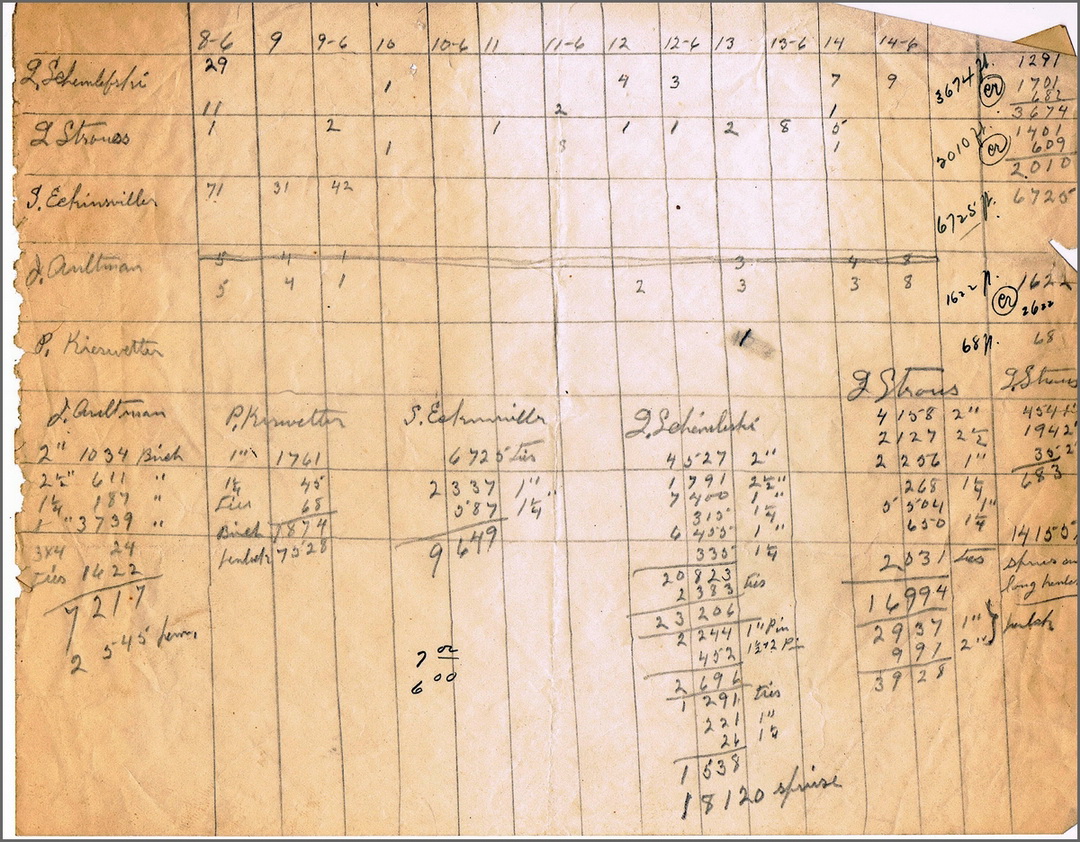 8-6 9 9-6 10 10-6 11 11-6 12 12-6 13 13-6 14 14-6
29 1291
1 4 3 7 9 3674 ft. er 1701
682
11 2 1 3674
L Strauss 1 2 1 1 1 2 8 5 1401
1 3 1 2010 ft. er 609
2010
S. Eckinsviller 71 31 42 6725 ft. 6725
5 4 1 3 4 8
J. Aultman 5 4 1 2 3 3 8 1622 ft. er 1622
2622
P. Kieswetter 1 68 ft. 68
J. Aultman
2" 1034 Birch
2½" 611 "
1¼ 187 "
1 " 3739 "
3x4 24
Ties 1622
7217
2 545
P. Kieswetter
1" 1761
1¼ 45
Ties 68
Birch 1874
7528
S. Eckinsviller
6725 ties
2337 1"
587 1¼"
9649
7 00
6 00
4527 2"
1791 2½"
7400 1"
315 1¼
6455 1"
335 1¼
20823
2383 ties
23206
2244 1" Pin
452 1½+2 Pin
2696
1291 ties
221 1"
26 1¼
1538
18120 spruse
L Straus
4158 2"
2127 2½
2256 1"
268 1¼
5504 1"
650 1¼
2031 ties
16994
2937 1"
991 2"
3928
L. Straus
4541
1942
35 2
683
14155
spruse
long